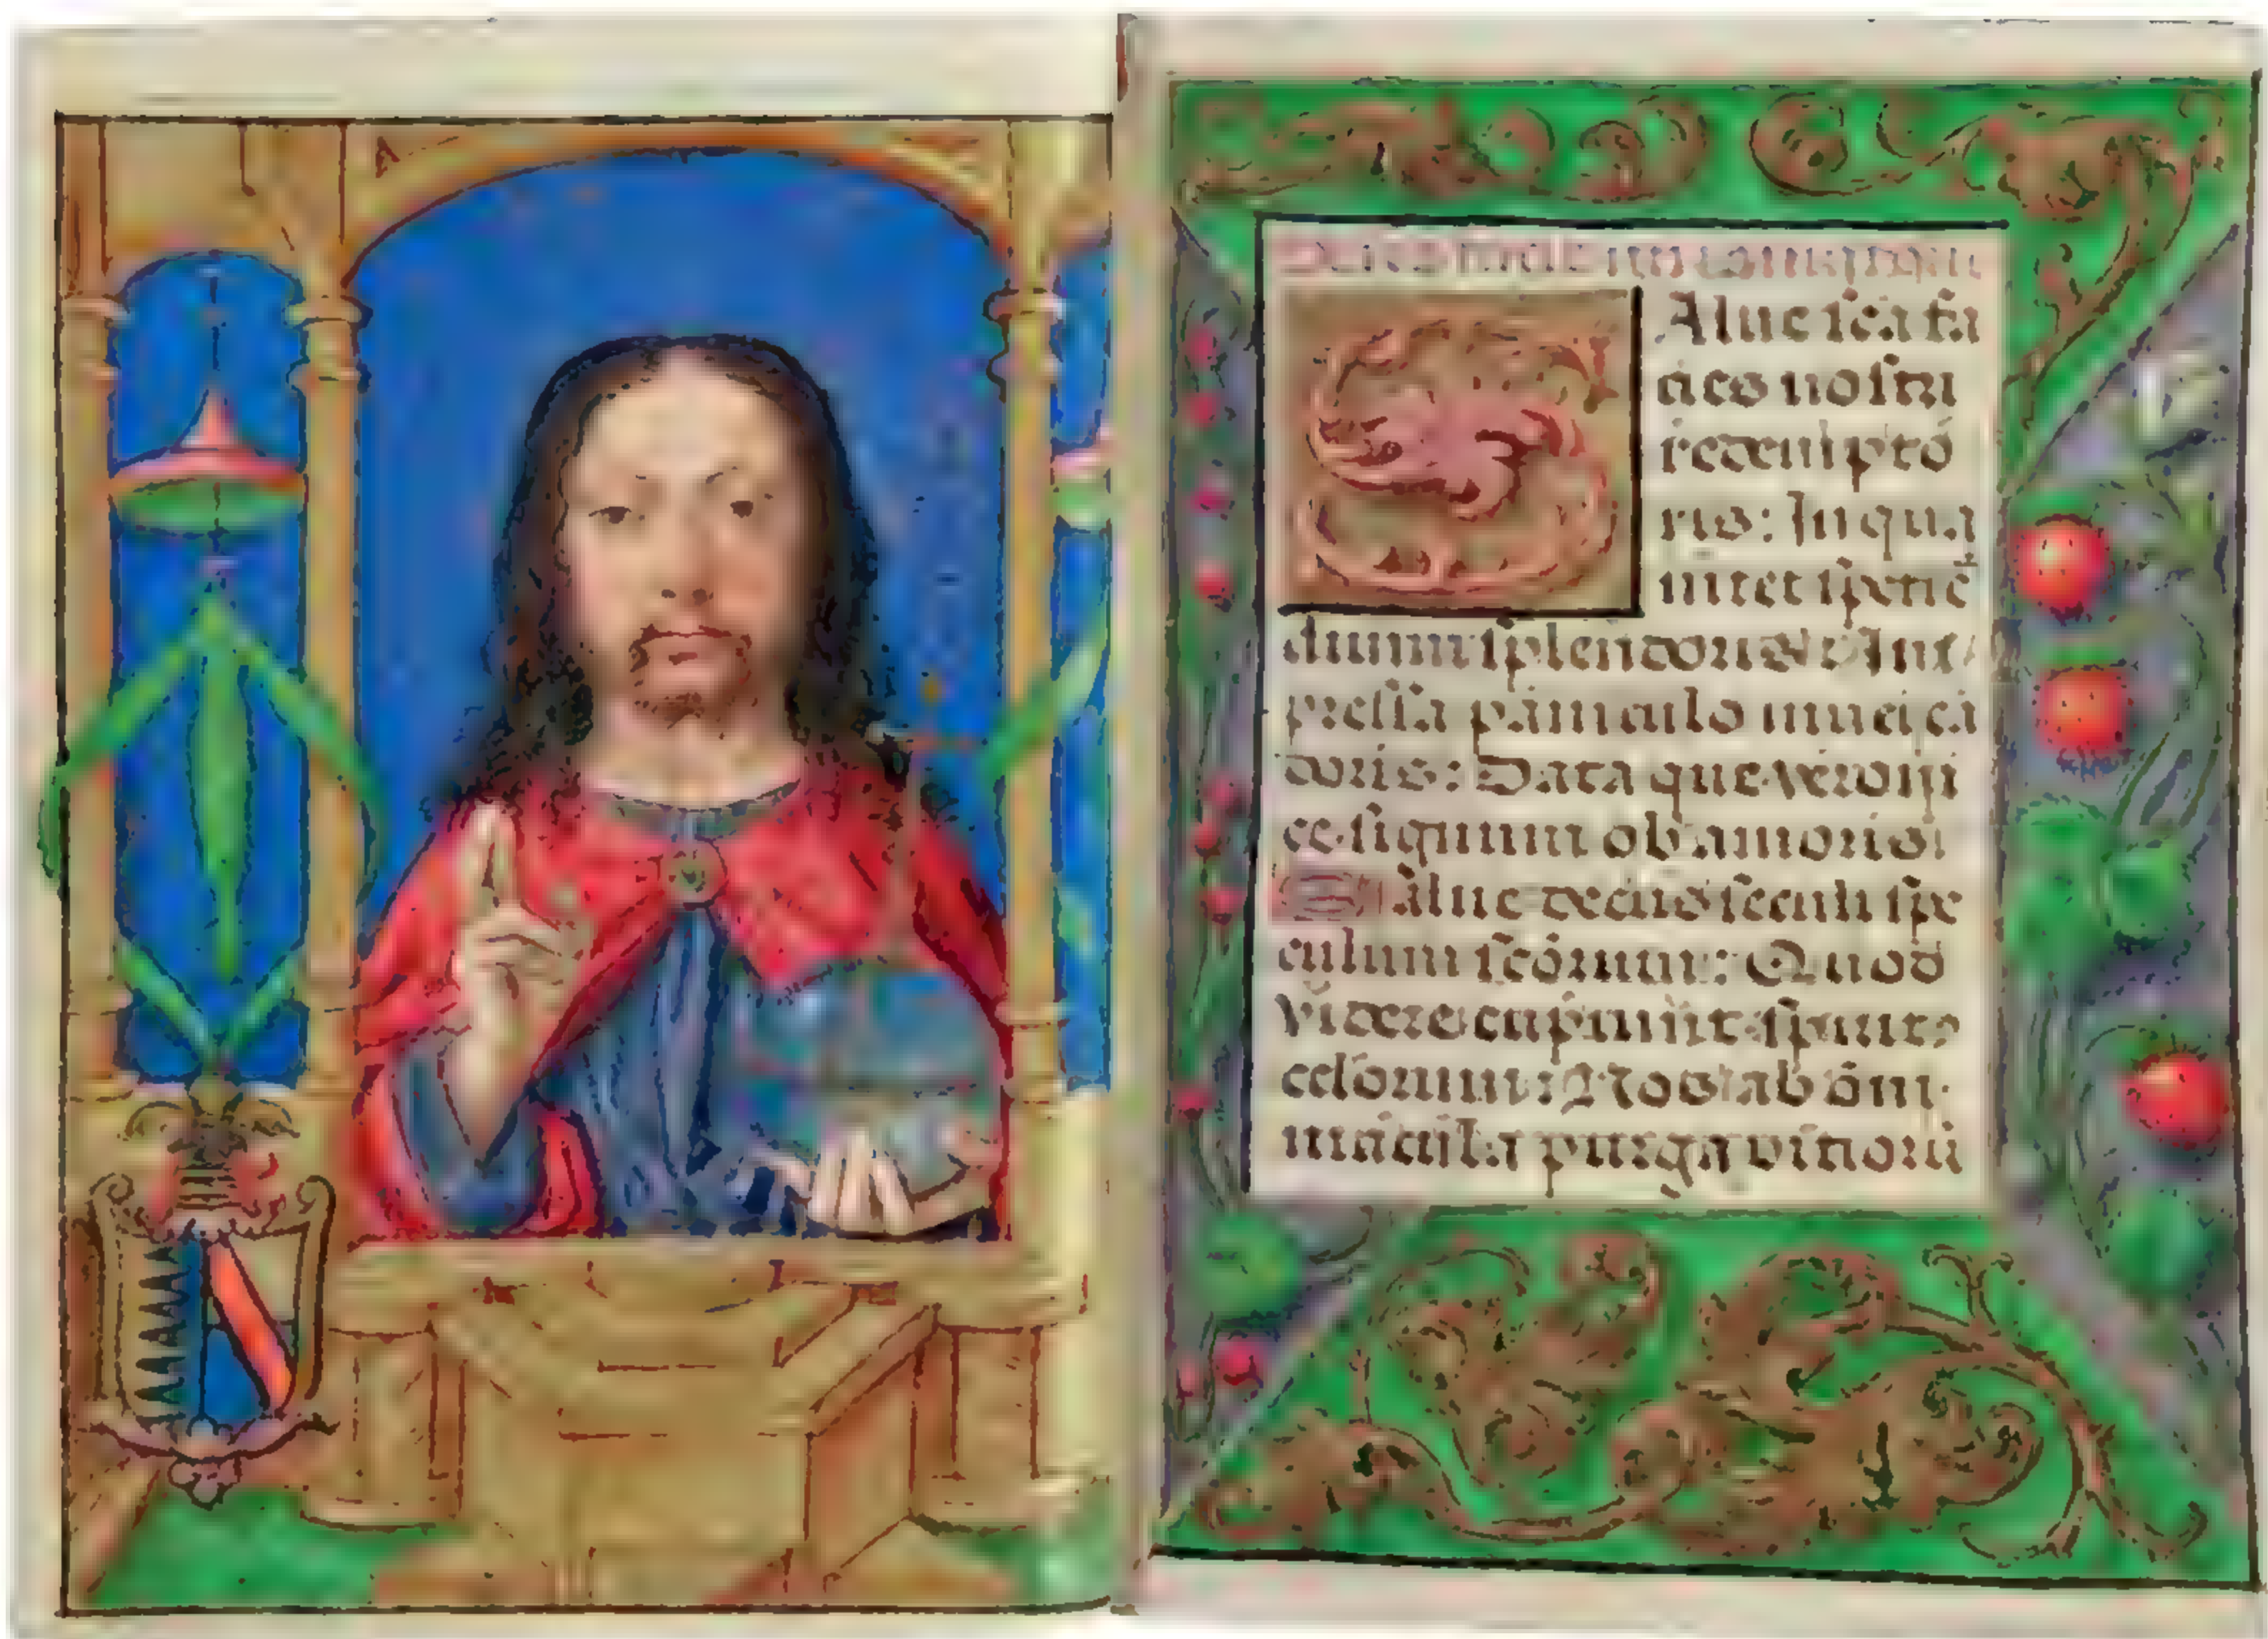 Salue sca fa
cies nostri
redempto
ris: In qua
nitet specie
diuini splendoris: Im
pressa panniculo niuei ca
doris: Data que veroni
ce signum ob amoris:
Salue decus seculi spe
culum scorum: Quod
videre cupiunt spiritus
celorum: Nos ab omi
macula purga vitioru